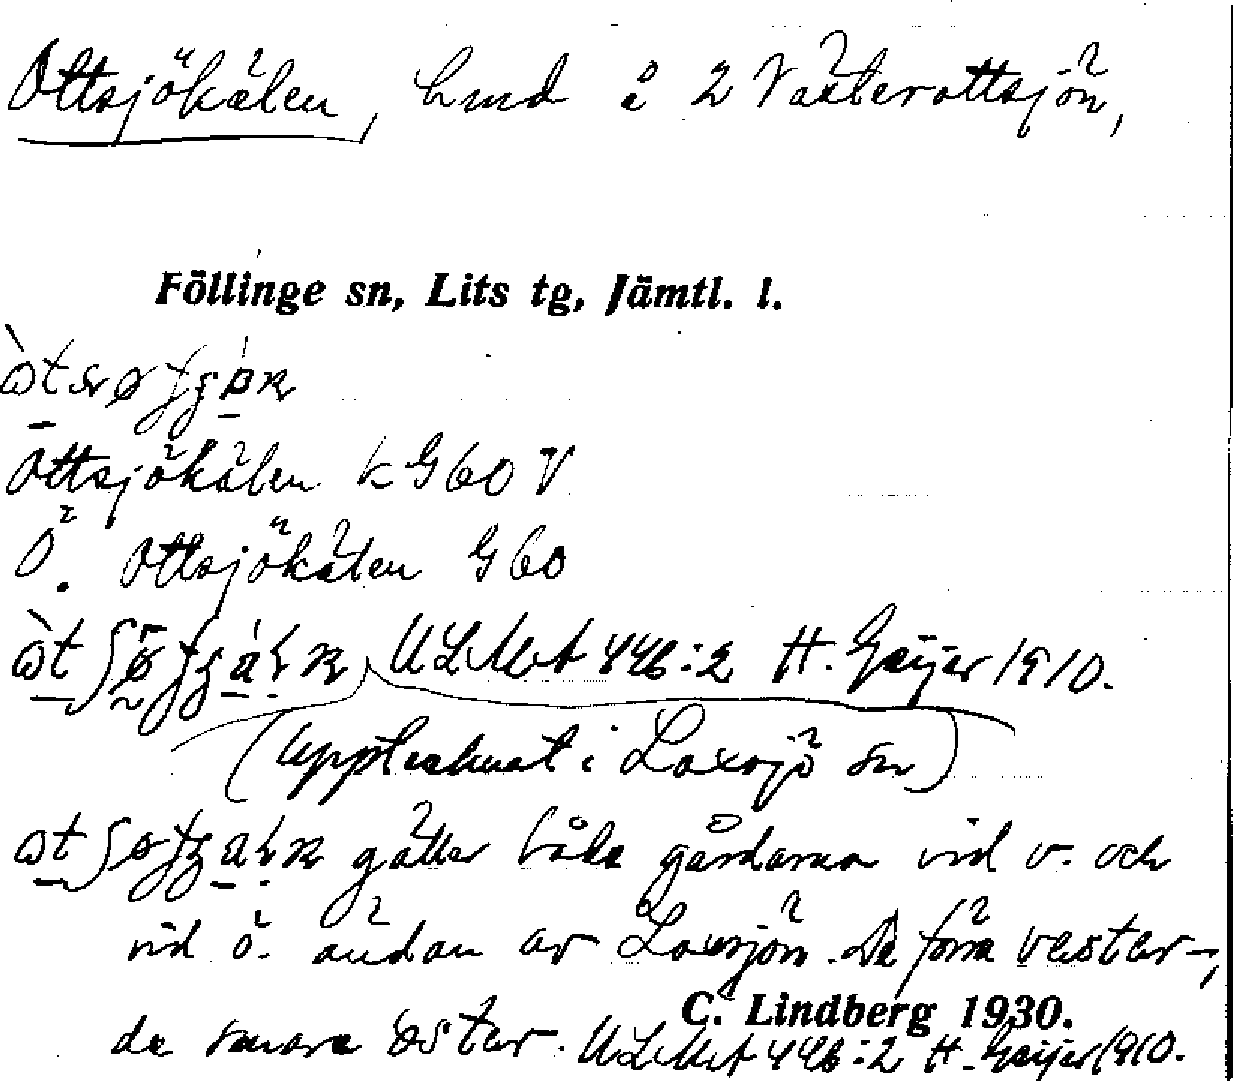 Ottsjökälen, hmd i 2 Västerottsjön,
Föllinge sn, Lits tg, Jämtl. l.
Ottsjökälen k G60 V
Ö. Ottsjökälen G60
ULMA 446:2 H. Geijer 1910.
(upptecknat i Laxsjö sn)
gäller båda gårdarna vid v. och
vid ö. ändan av Laxsjön. De förra väster-,
de senare öster- ULMA 446:2 H. Geijer 1910.
C. Lindberg 1930.